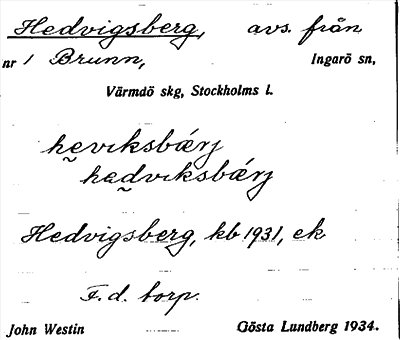 Hedvigsberg, avs. från
nr 1 Brunn, Ingarö sn,
Värmdö skg, Stockholms l.
hevιksbǽrj
hedvιksbǽrj
Hedvigsberg, kb 1931, ek
F.d. torp.
John Westin Gösta Lundberg 1934.